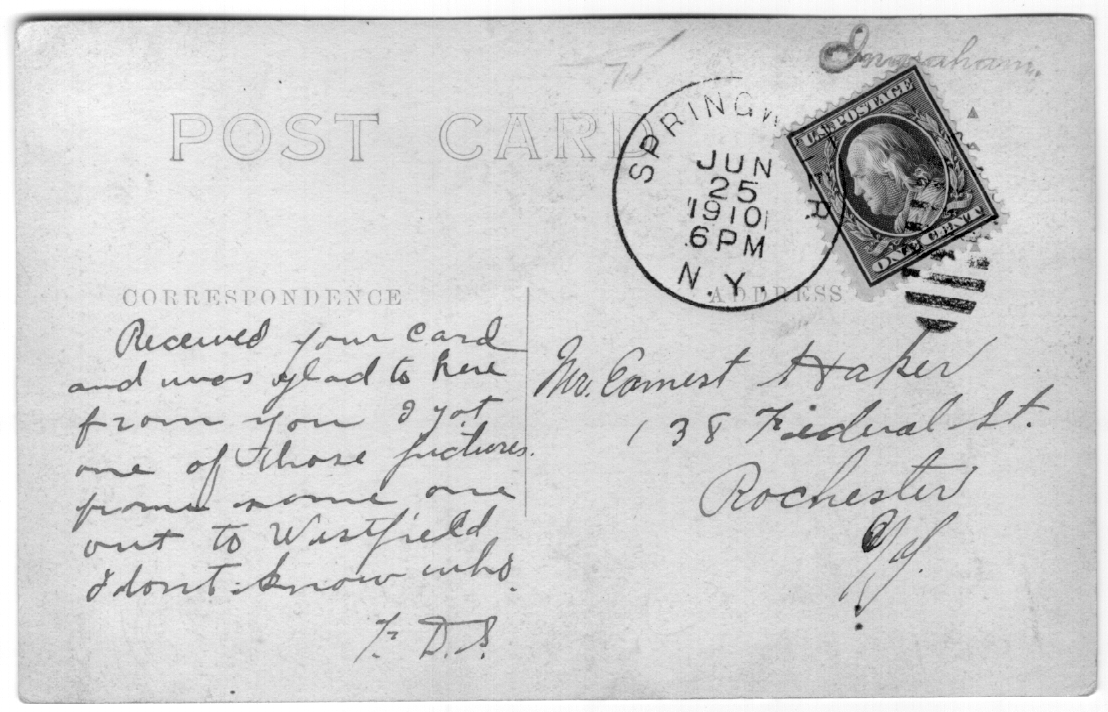 Ingraham.
POST CARD
SPRINGWATER
JUN
25
1910
6 PM
N.Y.
U.S. POSTAGE
ONE CENT
CORRESPONDENCE
ADDRESS
Received your card
and was glad to here
from you I got
one of those pictures.
from some one
out to Westfield
I dont know who.
F. D. S.
Mr. Earnest Haker
138 Fideral St.
Rochester
N.Y.